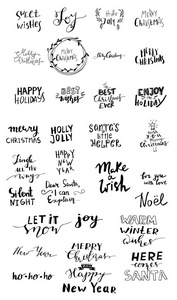 Sweet
wishes
Joy
Holly
Jolly
Merry
Christmas
Merry
Christmas
Merry Christmas
Merry
Christmas
HAPPY
HOLIDAYS
Best
wishes
The Best
Christmas
Ever
ENJOY
the
Holiday
merry
CHRISTMAS
HOLLY
JOLLY
Santa's
little
HELPER
Christmas
Jingle
all the
Way
HAPPY
NEW
YEAR
Make
a
Wish
for you
with
love
Silent
NIGHT
Dear Santa,
I can
Explain
Noël
LET IT
Snow
joy
WARM
winter
wishes
New Year
MERRY
Christmas
and
Happy
New Year
HERE
comes
SANTA
ho-ho-ho